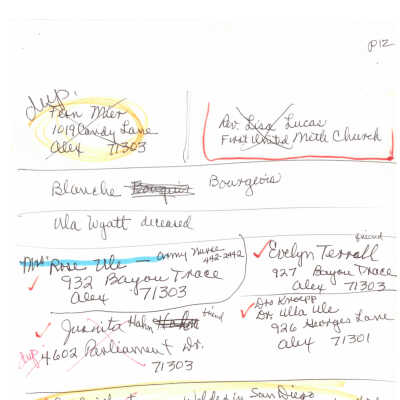 p12
dup.
Fern Mier
1019 Candy Lane
Alex 71303
Rev. Lisa Lucas
First United Meth Church
Blanche Bourgeois
Ula Wyatt deceased
Mrs Rose Ule — Army Nurse
442-2442
932 Bayou Trace
Alex 71303
friend
Evelyn Terrall
927 Bayou Trace
Alex 71303
Juanita Hahn friend
dup 4602 Parliament Dr.
71303
Drs Knoepp
Dr. Ulla Ule
926 Georges Lane
Alex 71301
Welded in San Diego